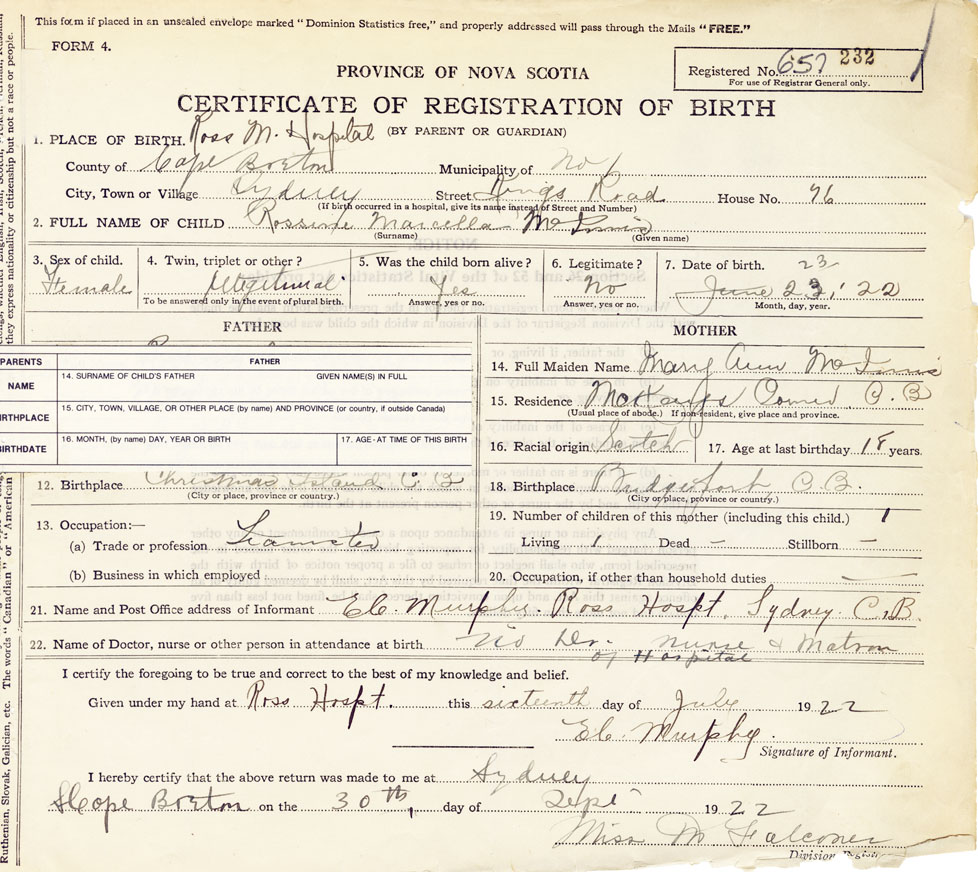 This form if placed in an unsealed envelope marked "Dominion Statistics free," and properly addressed will pass through the Mails "FREE."
FORM 4.
Registered No. 657 232
For use of Registrar General only.
PROVINCE OF NOVA SCOTIA
CERTIFICATE OF REGISTRATION OF BIRTH
(BY PARENT OR GUARDIAN)
1. PLACE OF BIRTH. Ross M. Hospital
County of Cape Breton Municipality of No
City, Town or Village Sydney Street Kings Road House No. 96
(If birth occurred in a hospital, give its name instead of Street and Number)
2. FULL NAME OF CHILD Rossine Marcella McInnis
(Surname) (Given name)
3. Sex of child. 4. Twin, triplet or other? 5. Was the child born alive? 6. Legitimate? 7. Date of birth. 23
Female Illegitimal Yes No June 23, '22
To be answered only in the event of plural birth. Answer, yes or no. Answer, yes or no. Month, day, year.
FATHER MOTHER
PARENTS FATHER
NAME 14. SURNAME OF CHILD'S FATHER GIVEN NAME(S) IN FULL
BIRTHPLACE 15. CITY, TOWN, VILLAGE, OR OTHER PLACE (by name) AND PROVINCE (or country, if outside Canada)
BIRTHDATE 16. MONTH, (by name) DAY, YEAR OR BIRTH 17. AGE - AT TIME OF THIS BIRTH
14. Full Maiden Name Mary Ann McInnis
15. Residence C. B
(Usual place of abode.) If non-resident, give place and province.
16. Racial origin Scotch 17. Age at last birthday 18 years.
12. Birthplace Christmas Island C B
(City or place, province or country.)
18. Birthplace Bridgeport, C. B.
(City or place, province or country.)
13. Occupation:—
(a) Trade or profession Teamster
(b) Business in which employed
19. Number of children of this mother (including this child.) 1
Living 1 Dead — Stillborn —
20. Occupation, if other than household duties —
21. Name and Post Office address of Informant E.C. Murphy. Ross Hospt, Sydney. C.B.
22. Name of Doctor, nurse or other person in attendance at birth No Dr. Nurse & Matron
of Hospital
I certify the foregoing to be true and correct to the best of my knowledge and belief.
Given under my hand at Ross Hospt. this sixteenth day of July 1922
E.C. Murphy.
Signature of Informant.
I hereby certify that the above return was made to me at Sydney
Cape Breton on the 30th, day of Sept 1922
Miss M Falconer
Division Registrar
they express nationality or citizenship but not a race or people.
Ruthenian, Slovak, Galician, etc. The words "Canadian" or "American"